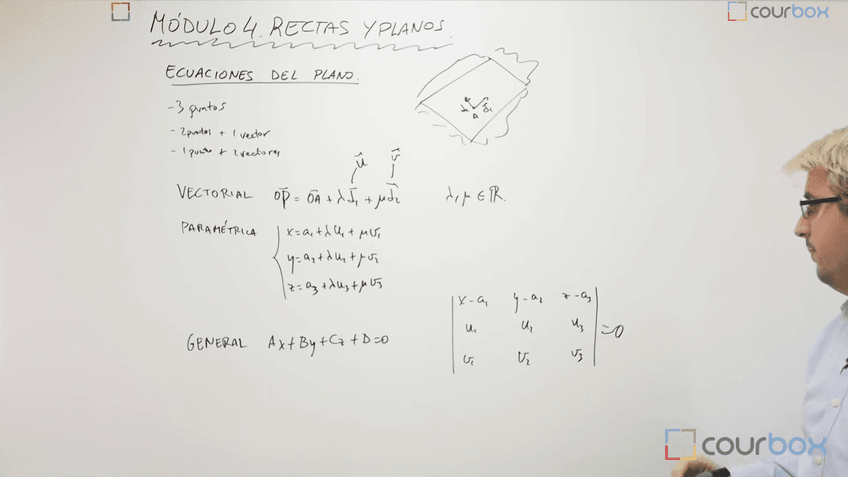 courbox
MÓDULO 4. RECTAS Y PLANOS.
ECUACIONES DEL PLANO.
- 3 puntos
- 2 puntos + 1 vector
- 1 punto + 2 vectores
u⃗ v⃗
VECTORIAL OP = OA + λ d₁ + μ d₂ λ, μ ∈ ℝ.
PARAMÉTRICA
x = a₁ + λu₁ + μv₁
y = a₂ + λu₂ + μv₂
z = a₃ + λu₃ + μv₃
x - a₁ y - a₂ z - a₃
u₁ u₂ u₃ = 0
v₁ v₂ v₃
GENERAL Ax + By + Cz + D = 0
courbox